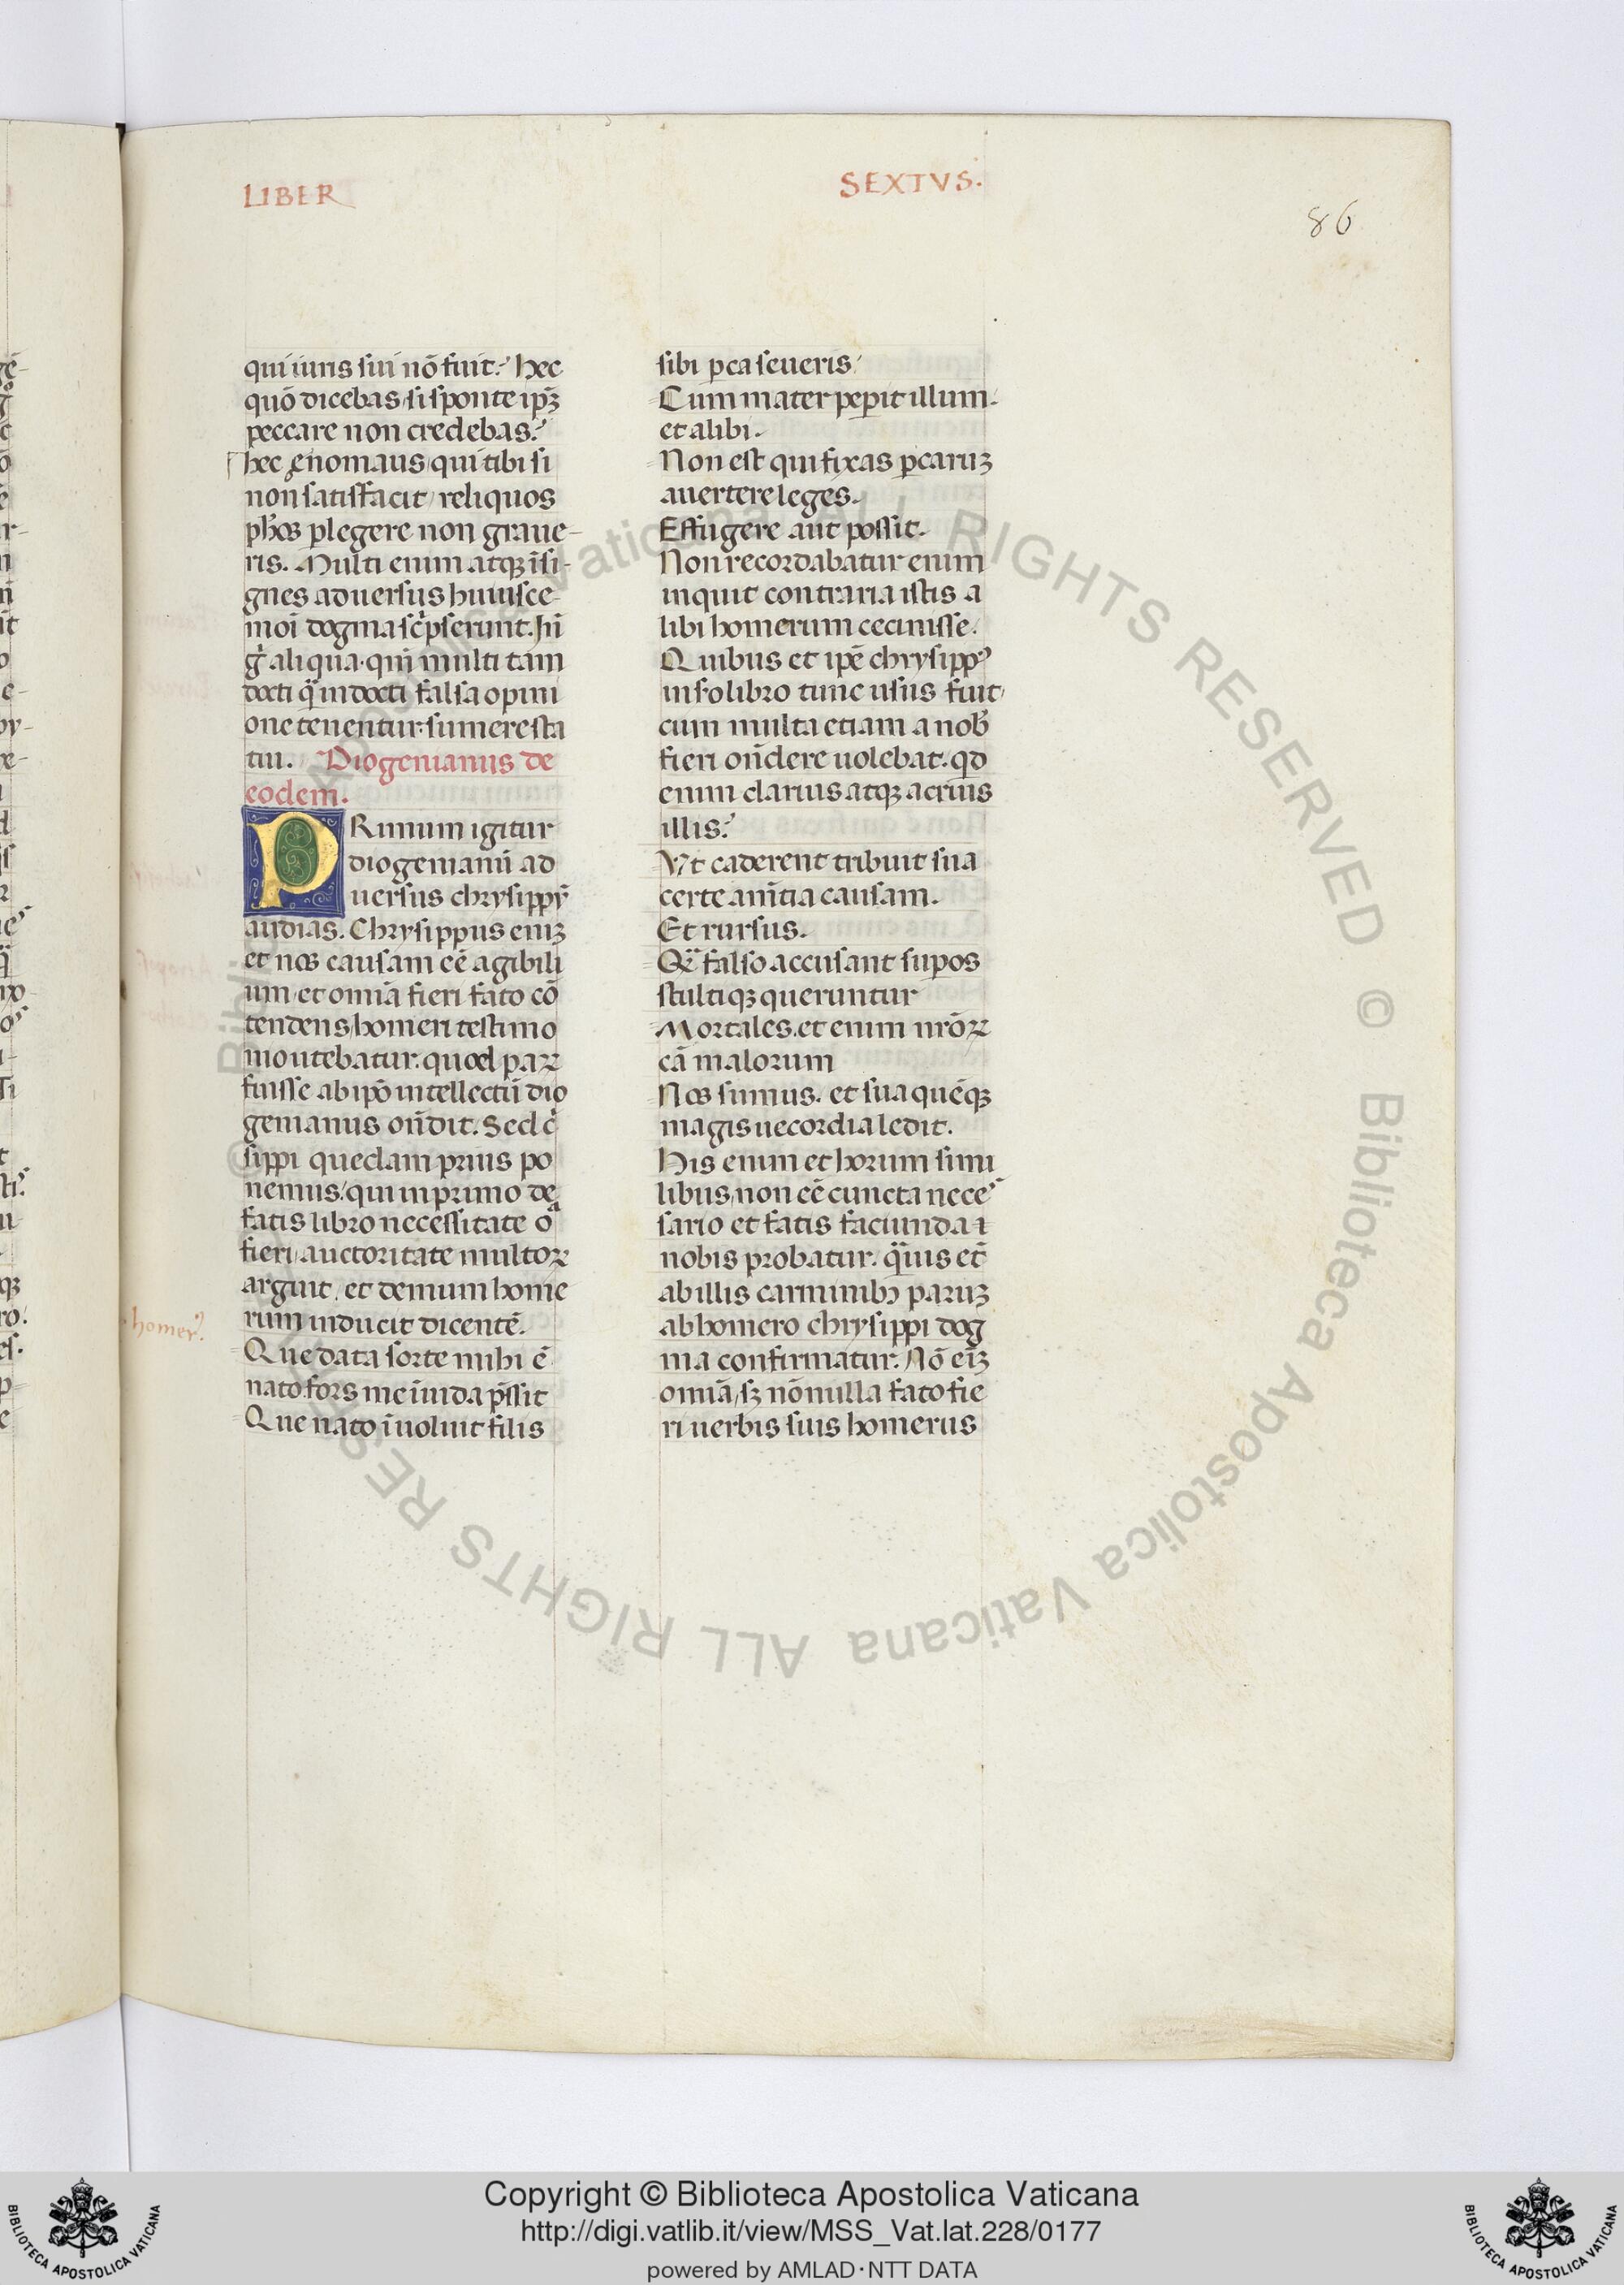 LIBER
SEXTVS.
86
qui iuris sui nō fuit? hec
quō dicebas / si sponte ipꝫ
peccare non credebas?
hec ęnomaus / qui tibi si
non satisfacit / reliquos
ph̄os ꝑlegere non graue-
ris. Multi enim atqꝫ īsi-
gnes aduersus huiusce
moī dogma sc̓pserunt. hīī
g̓ aliqua · qm̄ multi tam
docti q̄ȝ indocti falsa opini
one tenentur: sumere sta
tui. Diogenianus de
eodem.
PRimum igitur
diogenianū ad
uersus chrysippū
audias. Chrysippus eniꝫ
et nos causam eē agibili
um / et omīa fieri fato cō
tendens / homeri testimo
nio utebatur: quod paꝝ
fuisse ab ipō intellectū dio
genianus on̄dit. Sed c̓
sippi quedam prius po
nemus / qui in primo de
fatis libro necessitate oīa
fieri / auctoritate multoꝝ
arguit / et demum home
rum inducit dicentē.
homerꝰ.
Que data sorte mihi ē
nato. fors me īuida p̄ssit
Que nato īuoluit filis
sibi ꝑca seueris /
Cum mater peꝑit illum.
et alibi.
Non est qui fixas ꝑcaruꝫ
auertere leges.
Effugere aut possit.
Non recordabatur enim
inquit contraria istis a
libi homerum cecinisse /
Quibus et ipē chrysippꝰ
in s̊o libro tunc usus fuit /
cum multa etiam a nob̄
fieri on̄dere uolebat. qd
enim clarius atqꝫ acrius
illis?
Vt caderent tribuit sua
certe am̄tia causam.
Et rursus.
Q̄ falso accusant supos
stultiqꝫ queruntur
Mortales. et enim nr̄oꝝ
cā malorum
Nos sumus. et sua quēqꝫ
magis uecordia ledit.
His enim et horum simi
libus / non eē cuncta neces
sario et fatis facienda ı
nobis probatur. q̄uis et̄
ab illis carminibꝫ paruꝫ
ab homero chrysippi dog
ma confirmatur. Nō eīꝫ
omīa / sꝫ nōnulla fato fie
ri uerbis suis homerus
© Biblioteca Apostolica Vaticana ALL RIGHTS RESERVED © Biblioteca Apostolica Vaticana ALL RIGHTS RESERVED
BIBLIOTECA APOSTOLICA VATICANA
Copyright © Biblioteca Apostolica Vaticana
http://digi.vatlib.it/view/MSS_Vat.lat.228/0177
powered by AMLAD·NTT DATA
BIBLIOTECA APOSTOLICA VATICANA